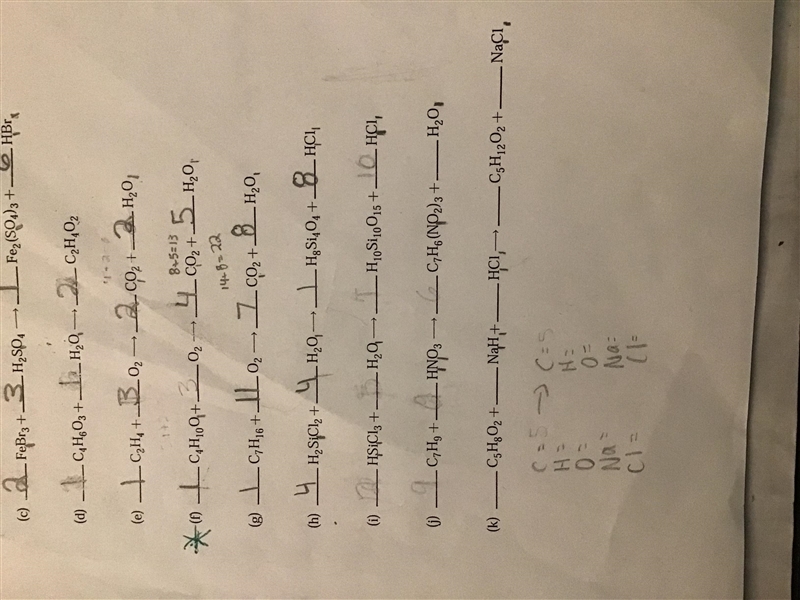 (c) 2 FeBr₃ + 3 H₂SO₄ → 1 Fe₂(SO₄)₃ + 6 HBr₁
(d) C₄H₆O₃ + H₂O₁ → 2 C₂H₄O₂
(e) 1 C₂H₄ + 3 O₂ → 2 CO₂ + 2 H₂O₁
8+5=13
(f) 1 C₄H₁₀O₁ + 3 O₂ → 4 CO₂ + 5 H₂O₁
14+8=22
(g) 1 C₇H₁₆ + 11 O₂ → 7 CO₂ + 8 H₂O₁
(h) 4 H₂SiCl₂ + 4 H₂O₁ → 1 H₈Si₄O₄ + 8 HCl₁
(i) HSiCl₃ + H₂O₁ → H₁₀Si₁₀O₁₅ + 10 HCl₁
(j) 9 C₇H₉ + HNO₃ → 6 C₇H₆(NO₂)₃ + H₂O₁
(k) C₅H₈O₂ + NaH₁ + HCl₁ → C₅H₁₂O₂ + NaCl₁
C=5 → C=5
H= H=
O= O=
Na= Na=
Cl= Cl=